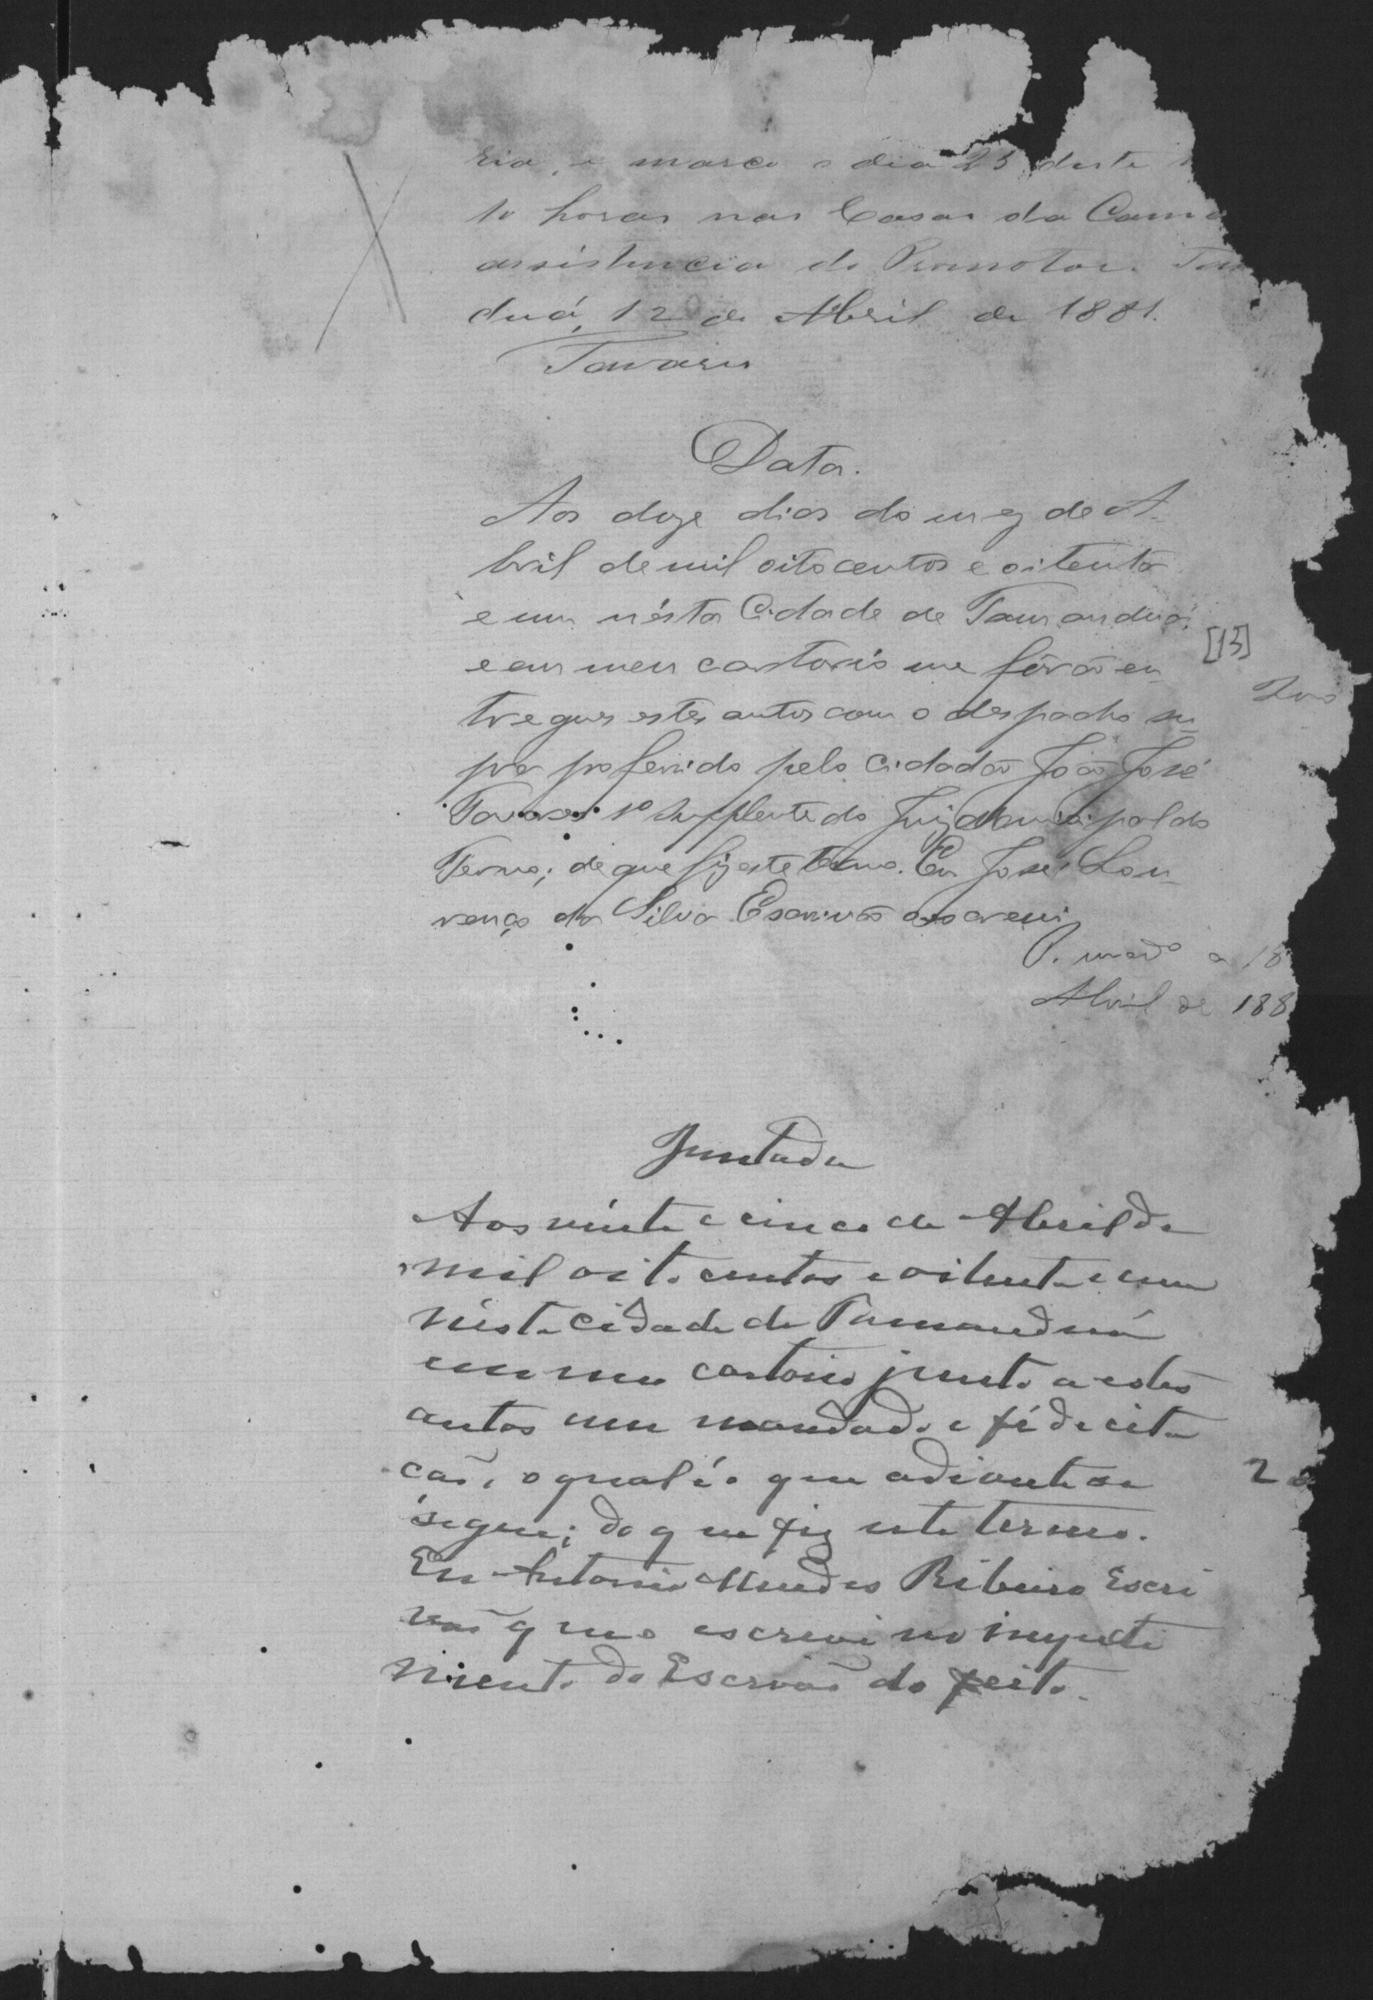 ria, e marco o dia 25 deste
10 horas nas Casas da Cama
assistencia do Promotor. Tam
duá, 12 de Abril de 1881.
Tavares
Data.
Aos doze dias do mez de A-
bril de mil oitocentos e oitenta
e um nésta Cidade de Tamanduá,
e em meu cartorio me fôrão en
[13]
tregues estes autos com o despacho su
pra proferido pelo cidadão João José
Tavares 1º Supplente do Juiz Municipal do
Termo; de que fiz este termo. Eu José Lou
renço da Silva Escrivão o escrevi
P. mado a 18
Abril de 188
Juntada
Aos vinte e cinco de Abril de
mil oito centos e oitenta e um
nésta cidade de Tamanduá
em meu cartorio junto a estes
autos um mandado e fé de cita
ção, o qual é o que adiante se
2
segue; do que fiz este termo.
Eu Antonio Mendes Ribeiro Escri
vão que o escrevi no impedi
mento do Escrivão do feito.